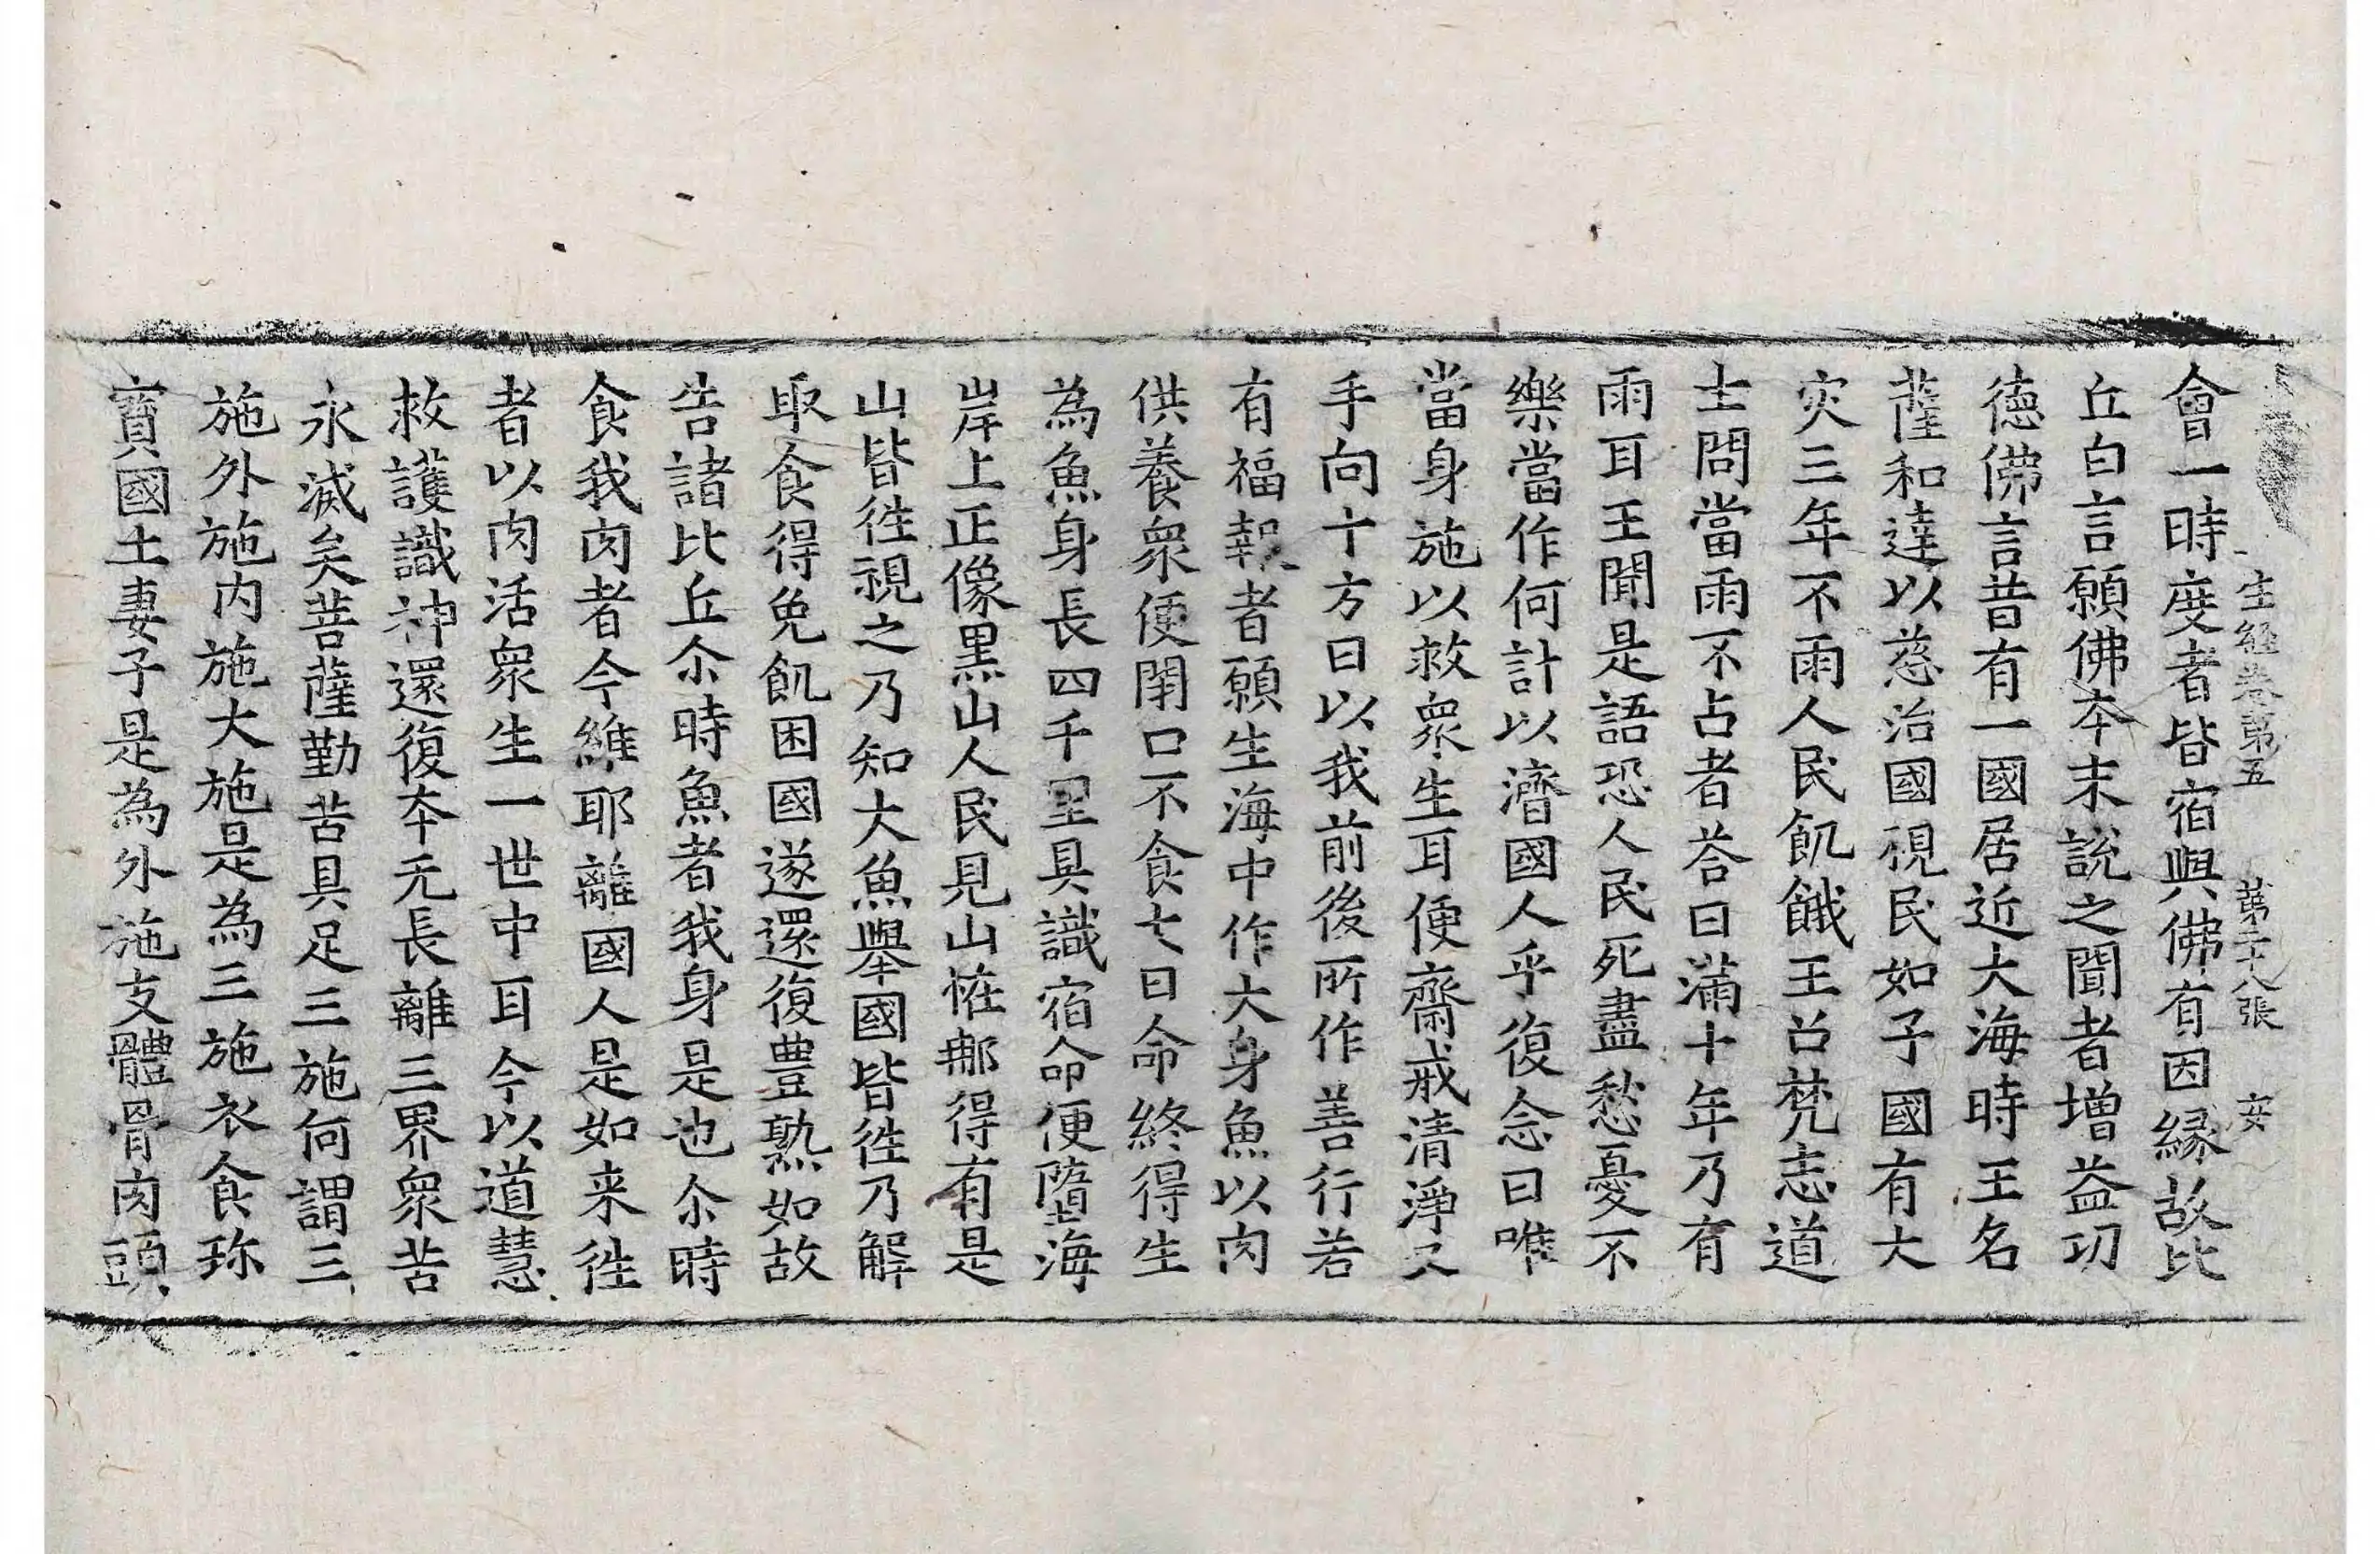 生經卷第五 第二十八張 安
會一時度者皆宿與佛有因縁故比
丘白言願佛夲末說之聞者增益功
德佛言昔有一國居近大海時王名
薩和達以慈治國視民如子國有大
灾三年不雨人民飢餓王召梵志道
士問當雨不占者荅曰滿十年乃有
雨耳王聞是語恐人民死盡愁憂不
樂當作何計以濟國人乎復念曰唯
當身施以救衆生耳便齋戒清淨叉
手向十方曰以我前後所作善行若
有福報者願生海中作大身魚以肉
供養衆便閉口不食七日命終得生
為魚身長四千里具識宿命便墮海
岸上正像黒山人民見山恠那得有是
山皆徃視之乃知大魚舉國皆徃乃解
取食得免飢困國遂還復豊熟如故
告諸比丘尒時魚者我身是也尒時
食我肉者今維耶離國人是如来徃
者以肉活衆生一世中耳今以道慧
救護識神還復夲无長離三界衆苦
永滅矣菩薩勤苦具足三施何謂三
施外施内施大施是為三施衣食珎
寳國土妻子是為外施支體骨肉頭